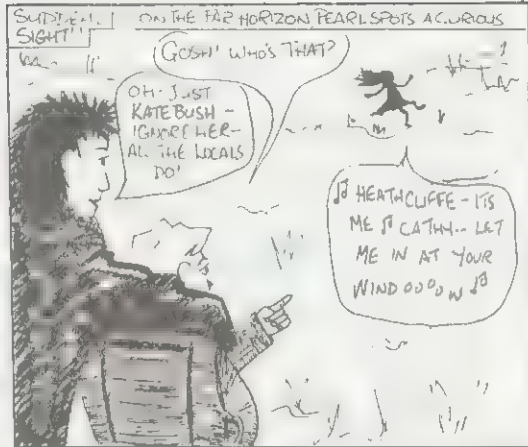 SUDDEN
SIGHT!!
ON THE FAR HORIZON, PEARL SPOTS A CURIOUS
GOSH! WHO'S THAT?
OH- JUST
KATE BUSH –
IGNORE HER–
ALL THE LOCALS
DO!
♫ HEATHCLIFFE – ITS
ME ♫ CATHY-- LET
ME IN AT YOUR
WINDOOOOW ♫